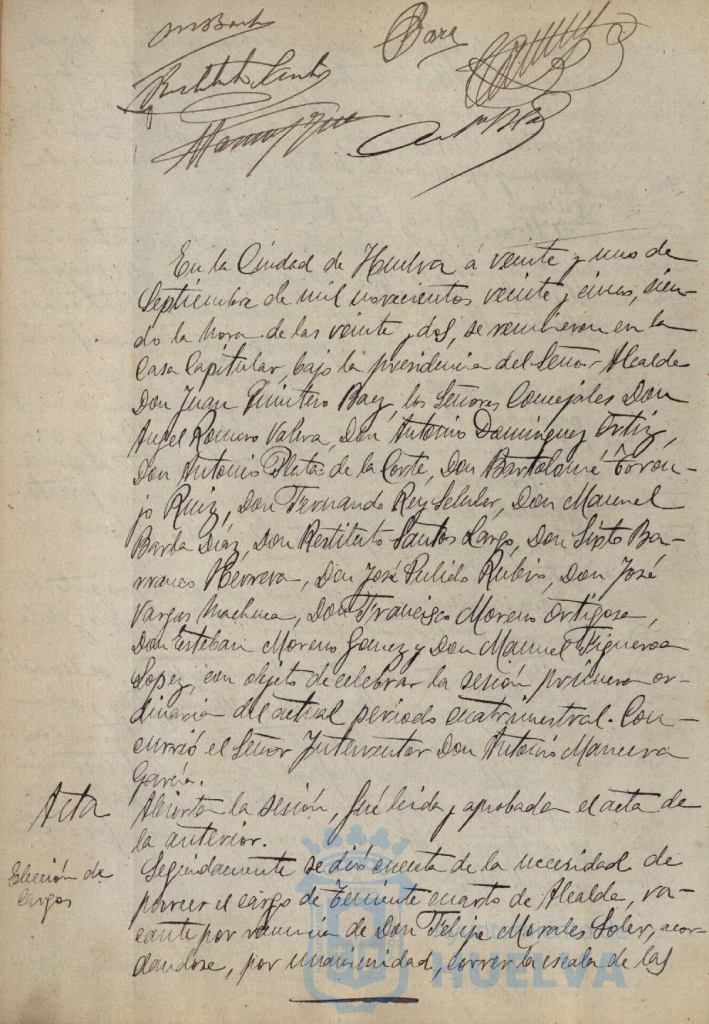 M Barba
Bare
Restituto Santos
En la Ciudad de Huelva á veinte y uno de
Septiembre de mil novecientos veinte y cinco, sien-
do la hora de las veinte y dos, se reunieron en la
Casa Capitular, bajo la presidencia del Señor Alcalde
Don Juan Quintero Baez, los Señores Concejales Don
Angel Romero Valera, Don Antonio Dominguez Ortiz,
Don Antonio Plata de la Corte, Don Bartolomé Toron-
jo Ruiz, Don Fernando Rey Seluler, Don Manuel
Barba Diaz, Don Restituto Santos Largo, Don Sixto Ba-
rranco Herrera, Don José Pulido Rubio, Don José
Vargas Machuca, Don Francisco Moreno Ortigosa,
Don Esteban Moreno Gomez y Don Manuel Figueroa
Lopez, con objeto de celebrar la sesión primera or-
dinaria del actual periodo cuatrimestral. Con-
currió el Señor Interventor Don Antonio Manueva
Garcia.
Acta
Abierta la sesión, fué leida y aprobada el acta de
la anterior.
Elección de
cargos
Seguidamente se dió cuenta de la necesidad de
proveer el cargo de Teniente cuarto de Alcalde, va-
cante por renuncia de Don Felipe Morales Soler, acor-
dandose, por unanimidad, correr la escala de las
HUELVA